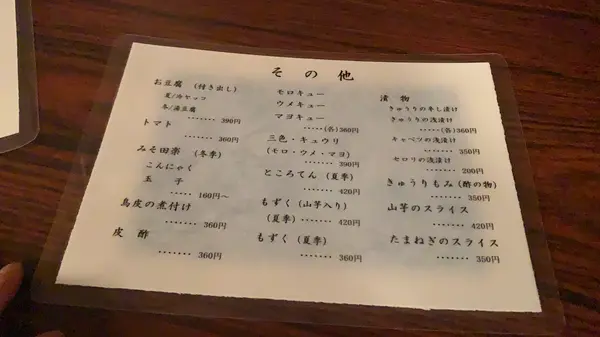 その他
お豆腐 (付き出し)
夏/冷ヤッコ
冬/湯豆腐
······· 390円
トマト
······· 360円
みそ田楽 (冬季)
こんにゃく
玉子
····· 160円～
鳥皮の煮付け
······· 360円
皮酢
······· 360円
モロキュー
ウメキュー
マヨキュー
·····(各)360円
三色・キュウリ
(モロ・ウメ・マヨ)
······· 390円
ところてん (夏季)
······· 420円
もずく (山芋入り)
(夏季) ······· 420円
もずく (夏季)
······· 360円
漬物
きゅうりの辛し漬け
きゅうりの浅漬け
·····(各)360円
キャベツの浅漬け
······· 350円
セロリの浅漬け
······· 200円
きゅうりもみ (酢の物)
······· 350円
山芋のスライス
······· 420円
たまねぎのスライス
······· 350円